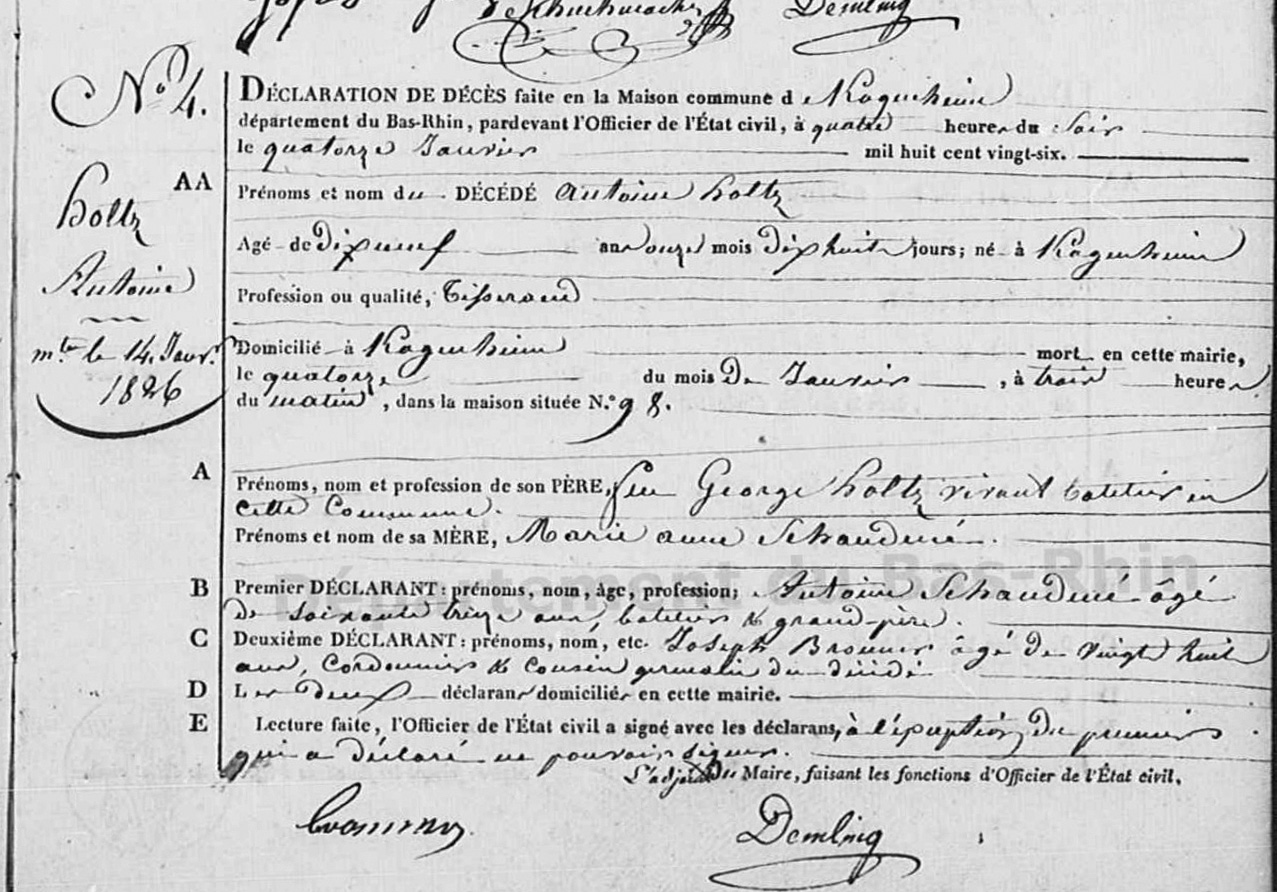 Demling
N.° 4.
DÉCLARATION DE DÉCÈS faite en la Maison commune d e Kogenheim
département du Bas-Rhin, pardevant l'Officier de l'État civil, à quatre heures du soir
le quatorze Janvier mil huit cent vingt-six.
holtz
Antoine
m.te le 14. Janv.r
1826
AA
Prénoms et nom du DÉCÉDÉ Antoine holtz
Agé de dix neuf ans onze mois dix huit jours; né à Kogenheim
Profession ou qualité, Tisserand
Domicilié à Kogenheim mort en cette mairie,
le quatorze du mois De Janvier, à trois heures
du matin, dans la maison située N.° 98.
A
Prénoms, nom et profession de son PÈRE, feu George holtz vivant batelier en
cette Commune.
Prénoms et nom de sa MÈRE, Marie anne Schaudené.
Département du Bas-Rhin
B
Premier DÉCLARANT: prénoms, nom, âge, profession; Antoine Schaudené âgé
de soixante treize ans, batelier & grand-père.
C
Deuxième DÉCLARANT: prénoms, nom, etc. Joseph Bronner âgé de vingt huit
ans, Cordonnier & Cousin germain du décédé
D
Les Deux déclarans domiciliés en cette mairie.
E
Lecture faite, l'Officier de l'État civil a signé avec les déclarans, à l'éxception du premier
qui a déclaré ne pouvoir signer.
L'adjoint Du Maire, faisant les fonctions d'Officier de l'État civil,
Demling